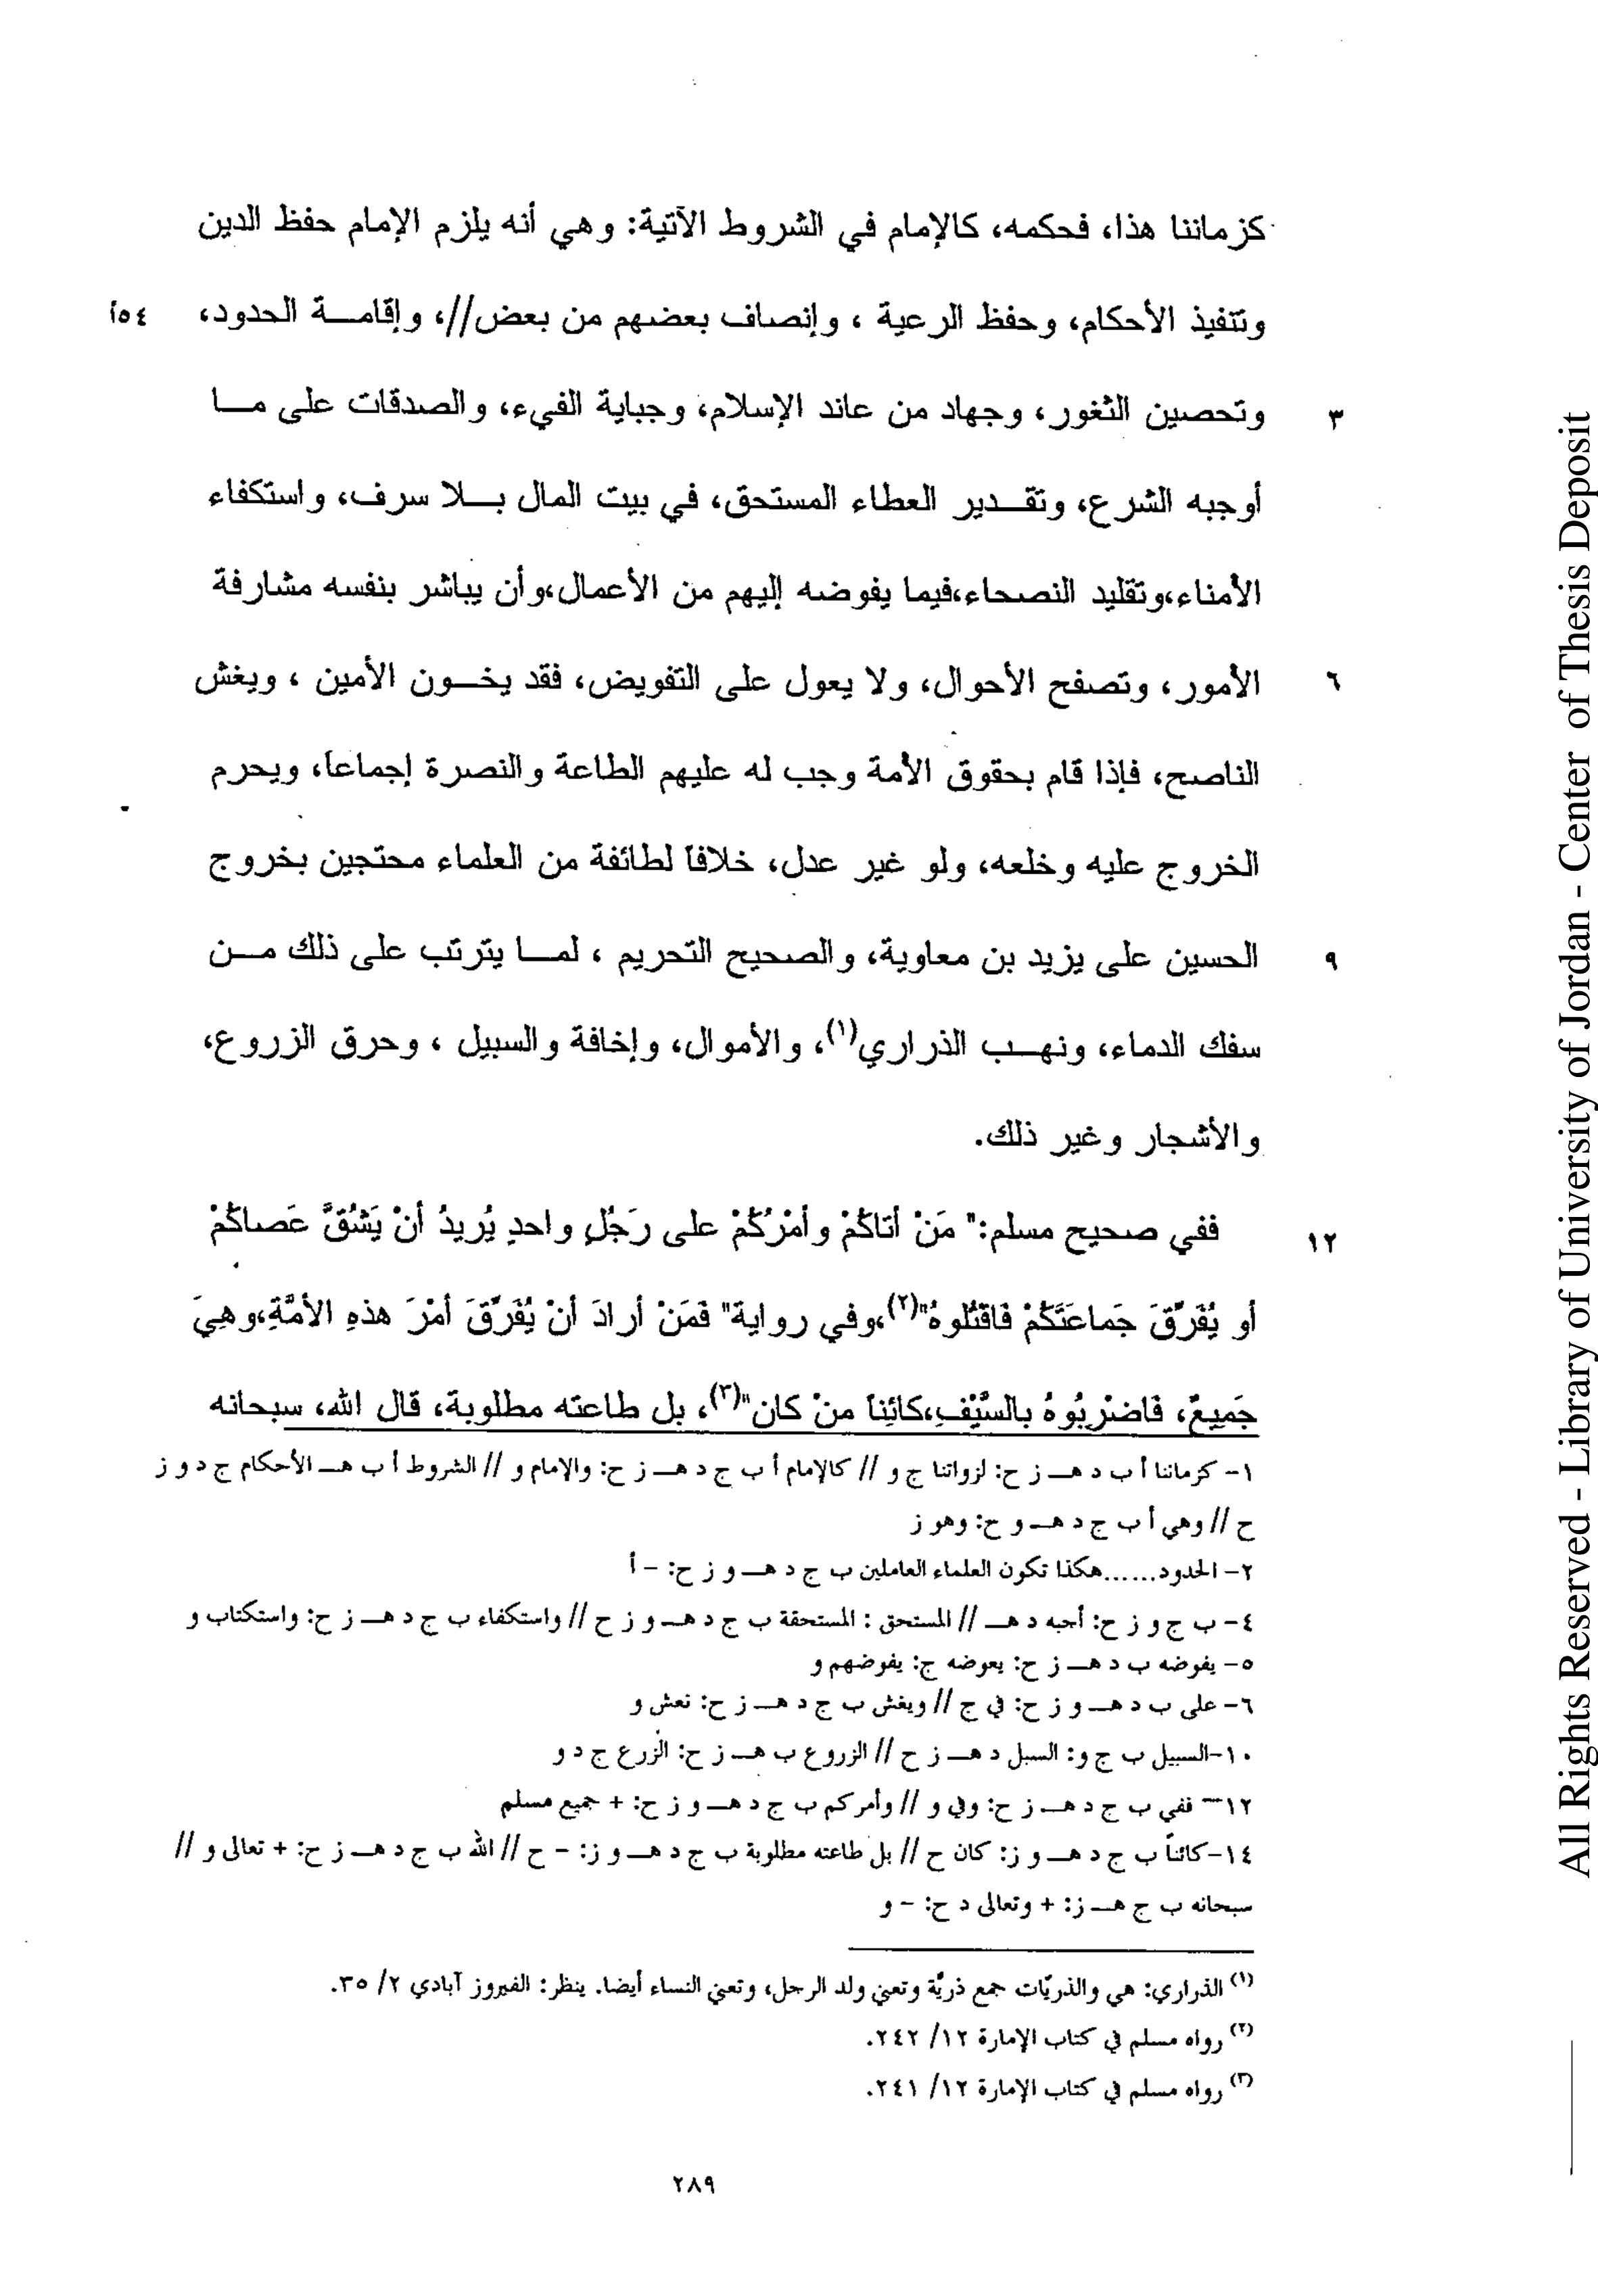 كزماننا هذا، فحكمه، كالإمام في الشروط الآتية: وهي أنه يلزم الإمام حفظ الدين
وتنفيذ الأحكام، وحفظ الرعية ، وإنصاف بعضهم من بعض//، وإقامـــة الحدود، ٥٤أ
٣ وتحصين الثغور، وجهاد من عاند الإسلام، وجباية الفيء، والصدقات على مـــا
أوجبه الشرع، وتقـــدير العطاء المستحق، في بيت المال بـــلا سرف، واستكفاء
الأمناء،وتقليد النصحاء،فيما يفوضه إليهم من الأعمال،وأن يباشر بنفسه مشارفة
٦ الأمور، وتصفح الأحوال، ولا يعول على التفويض، فقد يخـــون الأمين ، ويغش
الناصح، فإذا قام بحقوق الأمة وجب له عليهم الطاعة والنصرة إجماعاً، ويحرم
الخروج عليه وخلعه، ولو غير عدل، خلافاً لطائفة من العلماء محتجين بخروج
٩ الحسين على يزيد بن معاوية، والصحيح التحريم ، لمـــا يترتب على ذلك مـــن
سفك الدماء، ونهـــب الذراري(١)، والأموال، وإخافة والسبيل ، وحرق الزروع،
والأشجار وغير ذلك.
١٢ ففي صحيح مسلم:" مَنْ أتاكُمْ وأمْرُكُمْ على رَجُلٍ واحدٍ يُريدُ أنْ يَشُقَّ عَصاكُمْ
أو يُفَرِّقَ جَماعَتَكُمْ فَاقتُلوهُ"(٢)،وفي رواية" فَمَنْ أرادَ أنْ يُفَرِّقَ أمْرَ هذهِ الأمَّةِ،وهِيَ
جَميعٌ، فَاضْرِبُوهُ بالسَّيْفِ،كائِناً منْ كان"(٣)، بل طاعته مطلوبة، قال الله، سبحانه
١- كزماننا أ ب د هـــ ز ح: لزواتنا ج و // كالإمام أ ب ج د هـــ ز ح: والإمام و // الشروط أ ب هـــ الأحكام ج د و ز
ح // وهي أ ب ج د هـــ و ح: وهو ز
٢- الحدود......هكذا تكون العلماء العاملين ب ج د هـــ و ز ح: - أ
٤- ب ج و ز ح: أجبه د هـــ // المستحق : المستحقة ب ج د هـــ و ز ح // واستكفاء ب ج د هـــ ز ح: واستكتاب و
٥- يفوضه ب د هـــ ز ح: يعوضه ج: يفوضهم و
٦- على ب د هـــ و ز ح: في ج // ويغش ب ج د هـــ ز ح: نعش و
١٠-السبيل ب ج و: السبل د هـــ ز ح // الزروع ب هـــ ز ح: الزرع ج د و
١٢- ففي ب ج د هـــ ز ح: وفي و // وأمركم ب ج د هـــ و ز ح: + جميع مسلم
١٤-كائناً ب ج د هـــ و ز: كان ح // بل طاعته مطلوبة ب ج د هـــ و ز: - ح // الله ب ج د هـــ ز ح: + تعالى و //
سبحانه ب ج هـــ ز: + وتعالى د ح: - و
(١) الذراري: هي والذريّات جمع ذريّة وتعني ولد الرجل، وتعني النساء أيضا. ينظر: الفيروز آبادي ٢/ ٣٥.
(٢) رواه مسلم في كتاب الإمارة ١٢/ ٢٤٢.
(٣) رواه مسلم في كتاب الإمارة ١٢/ ٢٤١.
٢٨٩
All Rights Reserved - Library of University of Jordan - Center of Thesis Deposit